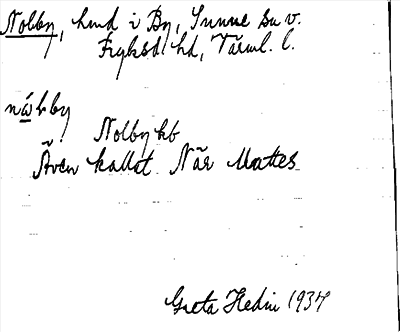 Nolby, hmd i By, Sunne sn v.
Fryksd. hd, Värml. l.
nὼlby
Nolby kb
Även kallat När Mattes
Greta Hedin 1937